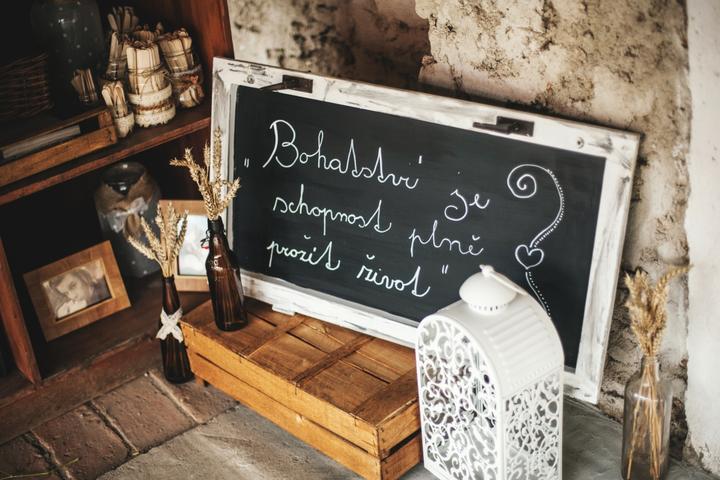 "Bohatství je
schopnost plně
prožít život"